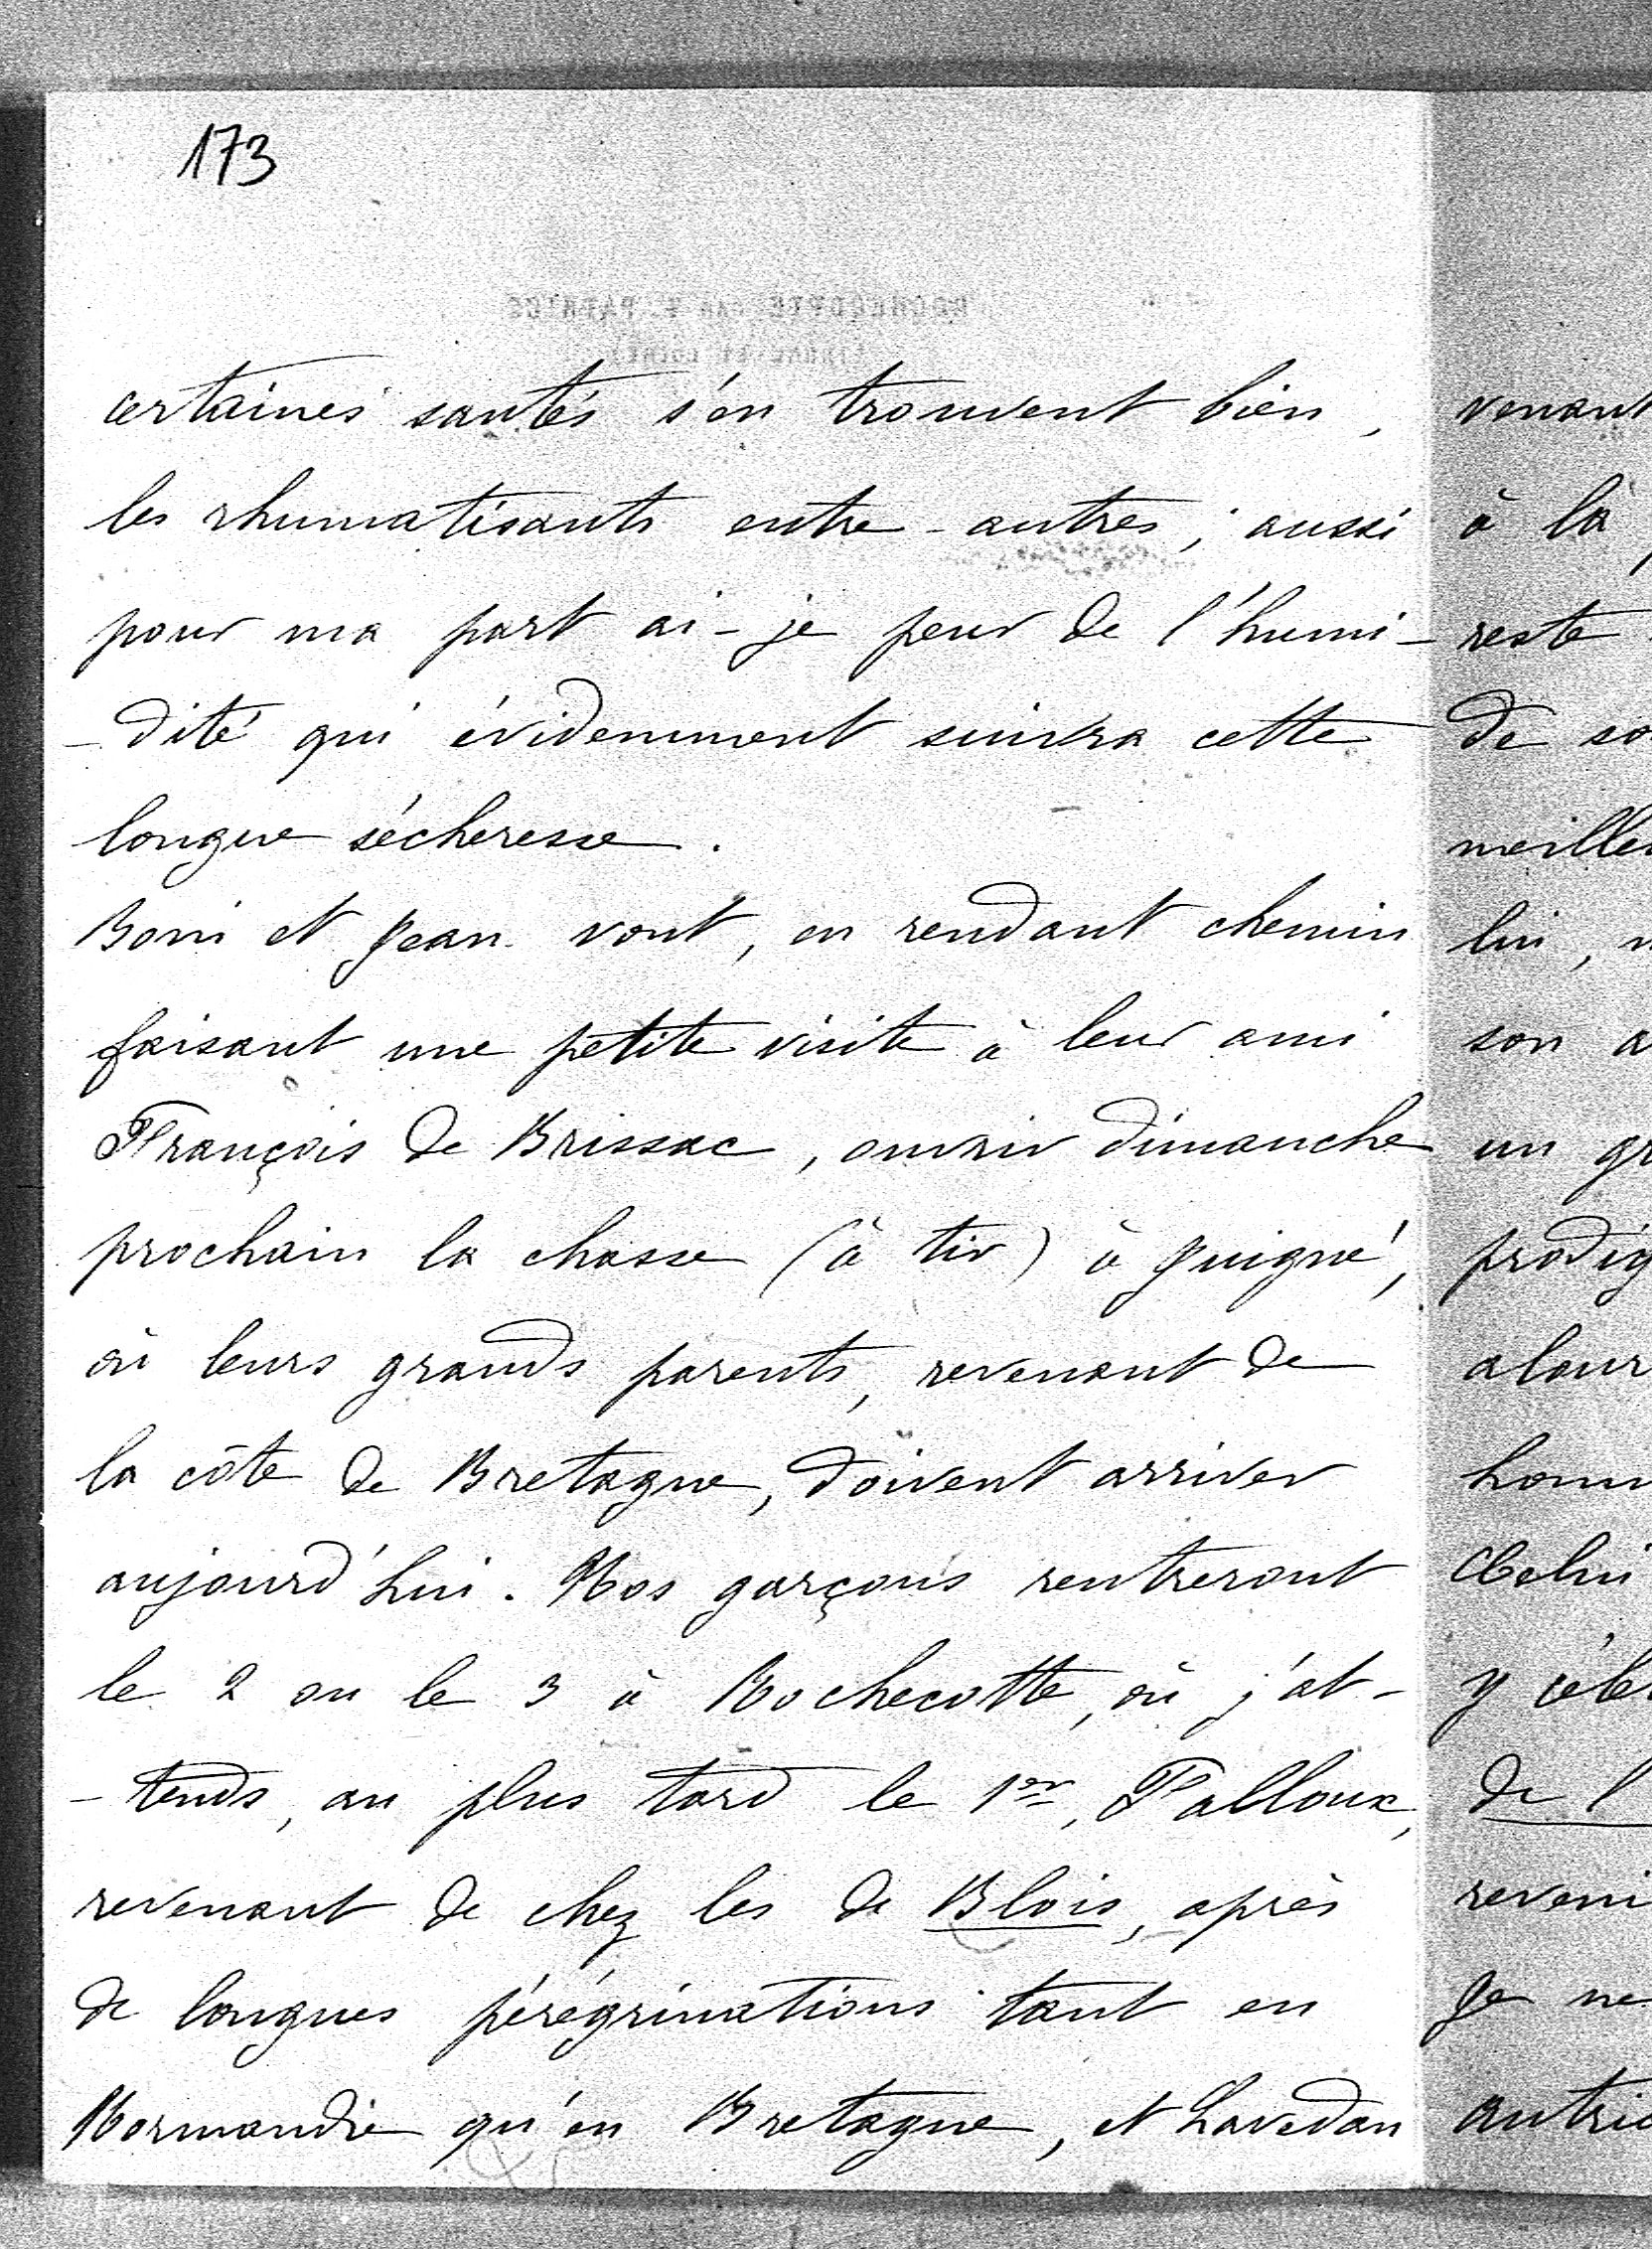 173
certaines santés s'en trouvent bien,
les rhumatisants entre-autres; aussi
pour ma part ai-je peur de l'humi-
-dité qui évidemment suivra cette
longue sécheresse.
Boni et Jean vont, en rendant chemin
faisant une petite visite à leur ami
François de Brissac, ouvrir dimanche
prochain la chasse (à tir) à Juigné,
où leurs grands parents, revenant de
la côte de Bretagne, doivent arriver
aujourd'hui. Nos garçons rentreront
le 2 ou le 3 à Rochecotte, où j'at-
-tends, au plus tard le 1er, Falloux,
revenant de chez les de Blois, après
de longues pérégrinations tant en
Normandie qu'en Bretagne, et Lavedan
venant
à la
reste
de so
meilles
lui, n
son a
un gr
prodig
alour
homm
Celui
y célé
de l
reveni
Je ne
autric